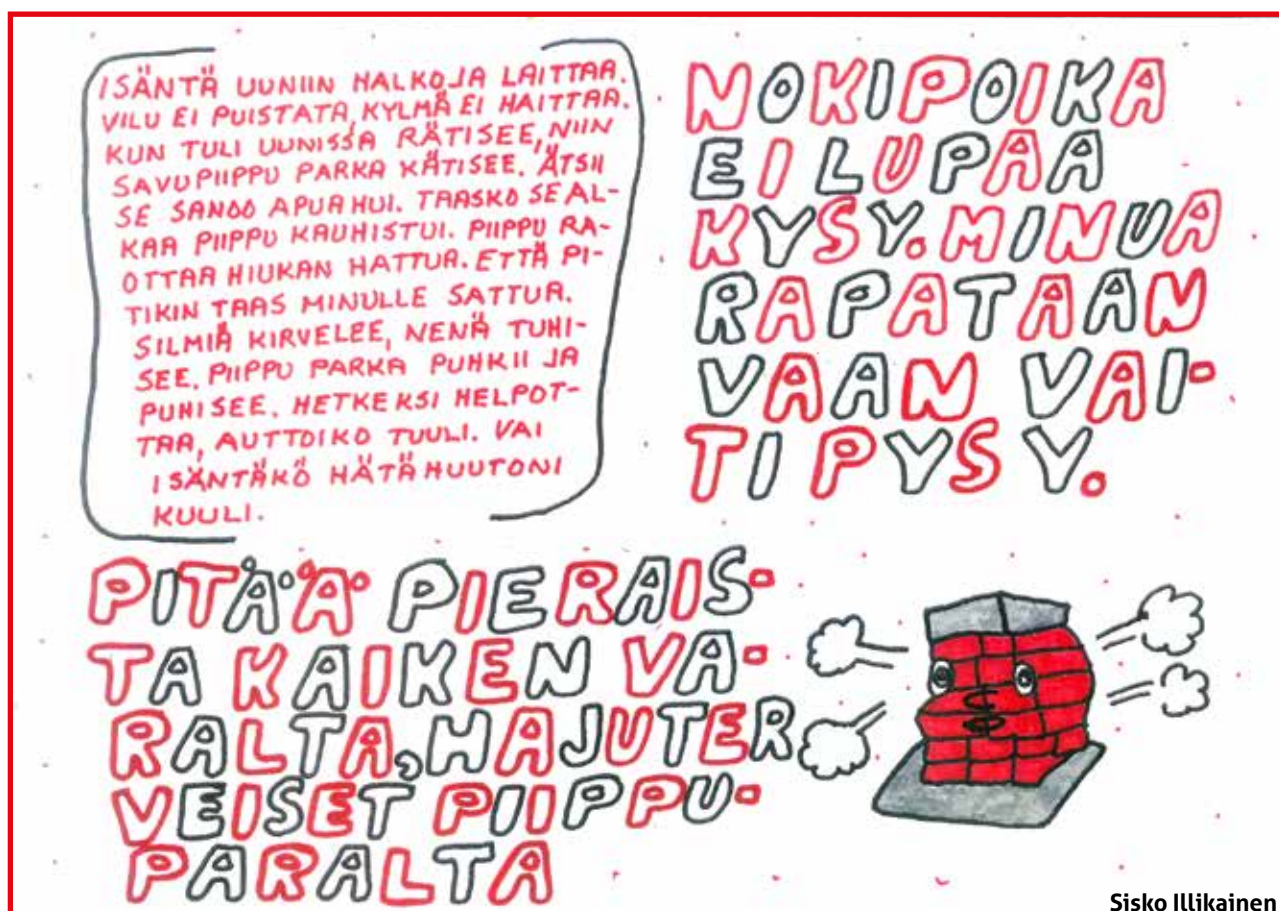 ISÄNTÄ UUNIIN HALKOJA LAITTAA.
VILU EI PUISTATA, KYLMÄ EI HAITTAA.
KUN TULI UUNISSA RÄTISEE, NIIN
SAVUPIIPPU PARKA KÄTISEE. ÄTSII
SE SANOO APUA HUI. TAASKO SE AL-
KAA PIIPPU KAUHISTUI. PIIPPU RA-
OTTAA HIUKAN HATTUA. ETTÄ PI-
TIKIN TAAS MINULLE SATTUA.
SILMIÄ KIRVELEE, NENÄ TUHI-
SEE. PIIPPU PARKA PUHKII JA
PUHISEE. HETKEKSI HELPOT-
TAA, AUTTOIKO TUULI. VAI
ISÄNTÄKÖ HÄTÄHUUTONI
KUULI.
NOKIPOIKA
EI LUPAA
KYSY. MINUA
RAPATAAN
VAAN VAI-
TI PYSY.
PITÄÄ PIERAIS-
TA KAIKEN VA-
RALTA, HAJUTER
VEISET PIIPPU-
PARALTA
Sisko Illikainen